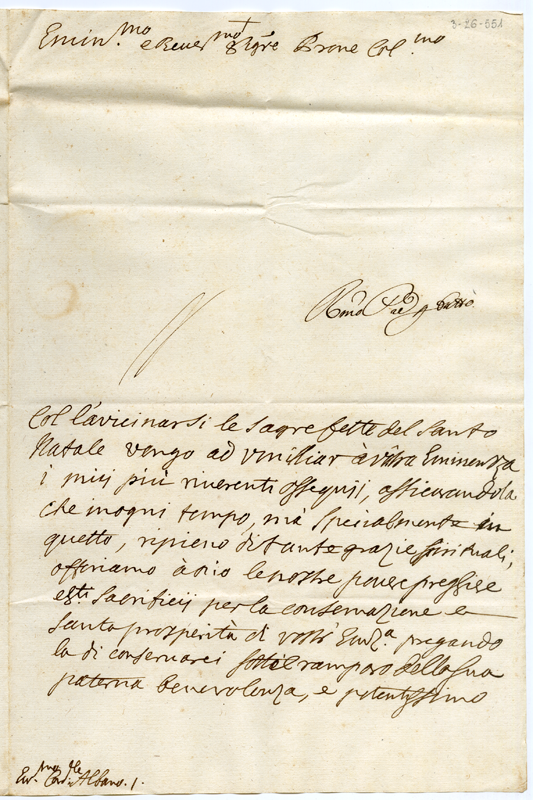 3-26-551
Emin.mo e Rever.mo Sig.re Prone Col.mo
Col l'avicinarsi le sagre feste del Santo
Natale vengo ad umiliar à vostra Eminenza
i miei più riverenti ossequij, assicurandola
che in ogni tempo, mà specialmente in
questo, ripieno di tante grazie spirituali,
offeriamo à Dio le nostre povere preghiere
e Sacrificij per la conservazione e
santa prosperità di vostr' Emza. pregando
la di conservarci sotto il ramparo della sua
paterna benevolenza, e potentissimo
Em.mo Card.le Albano.